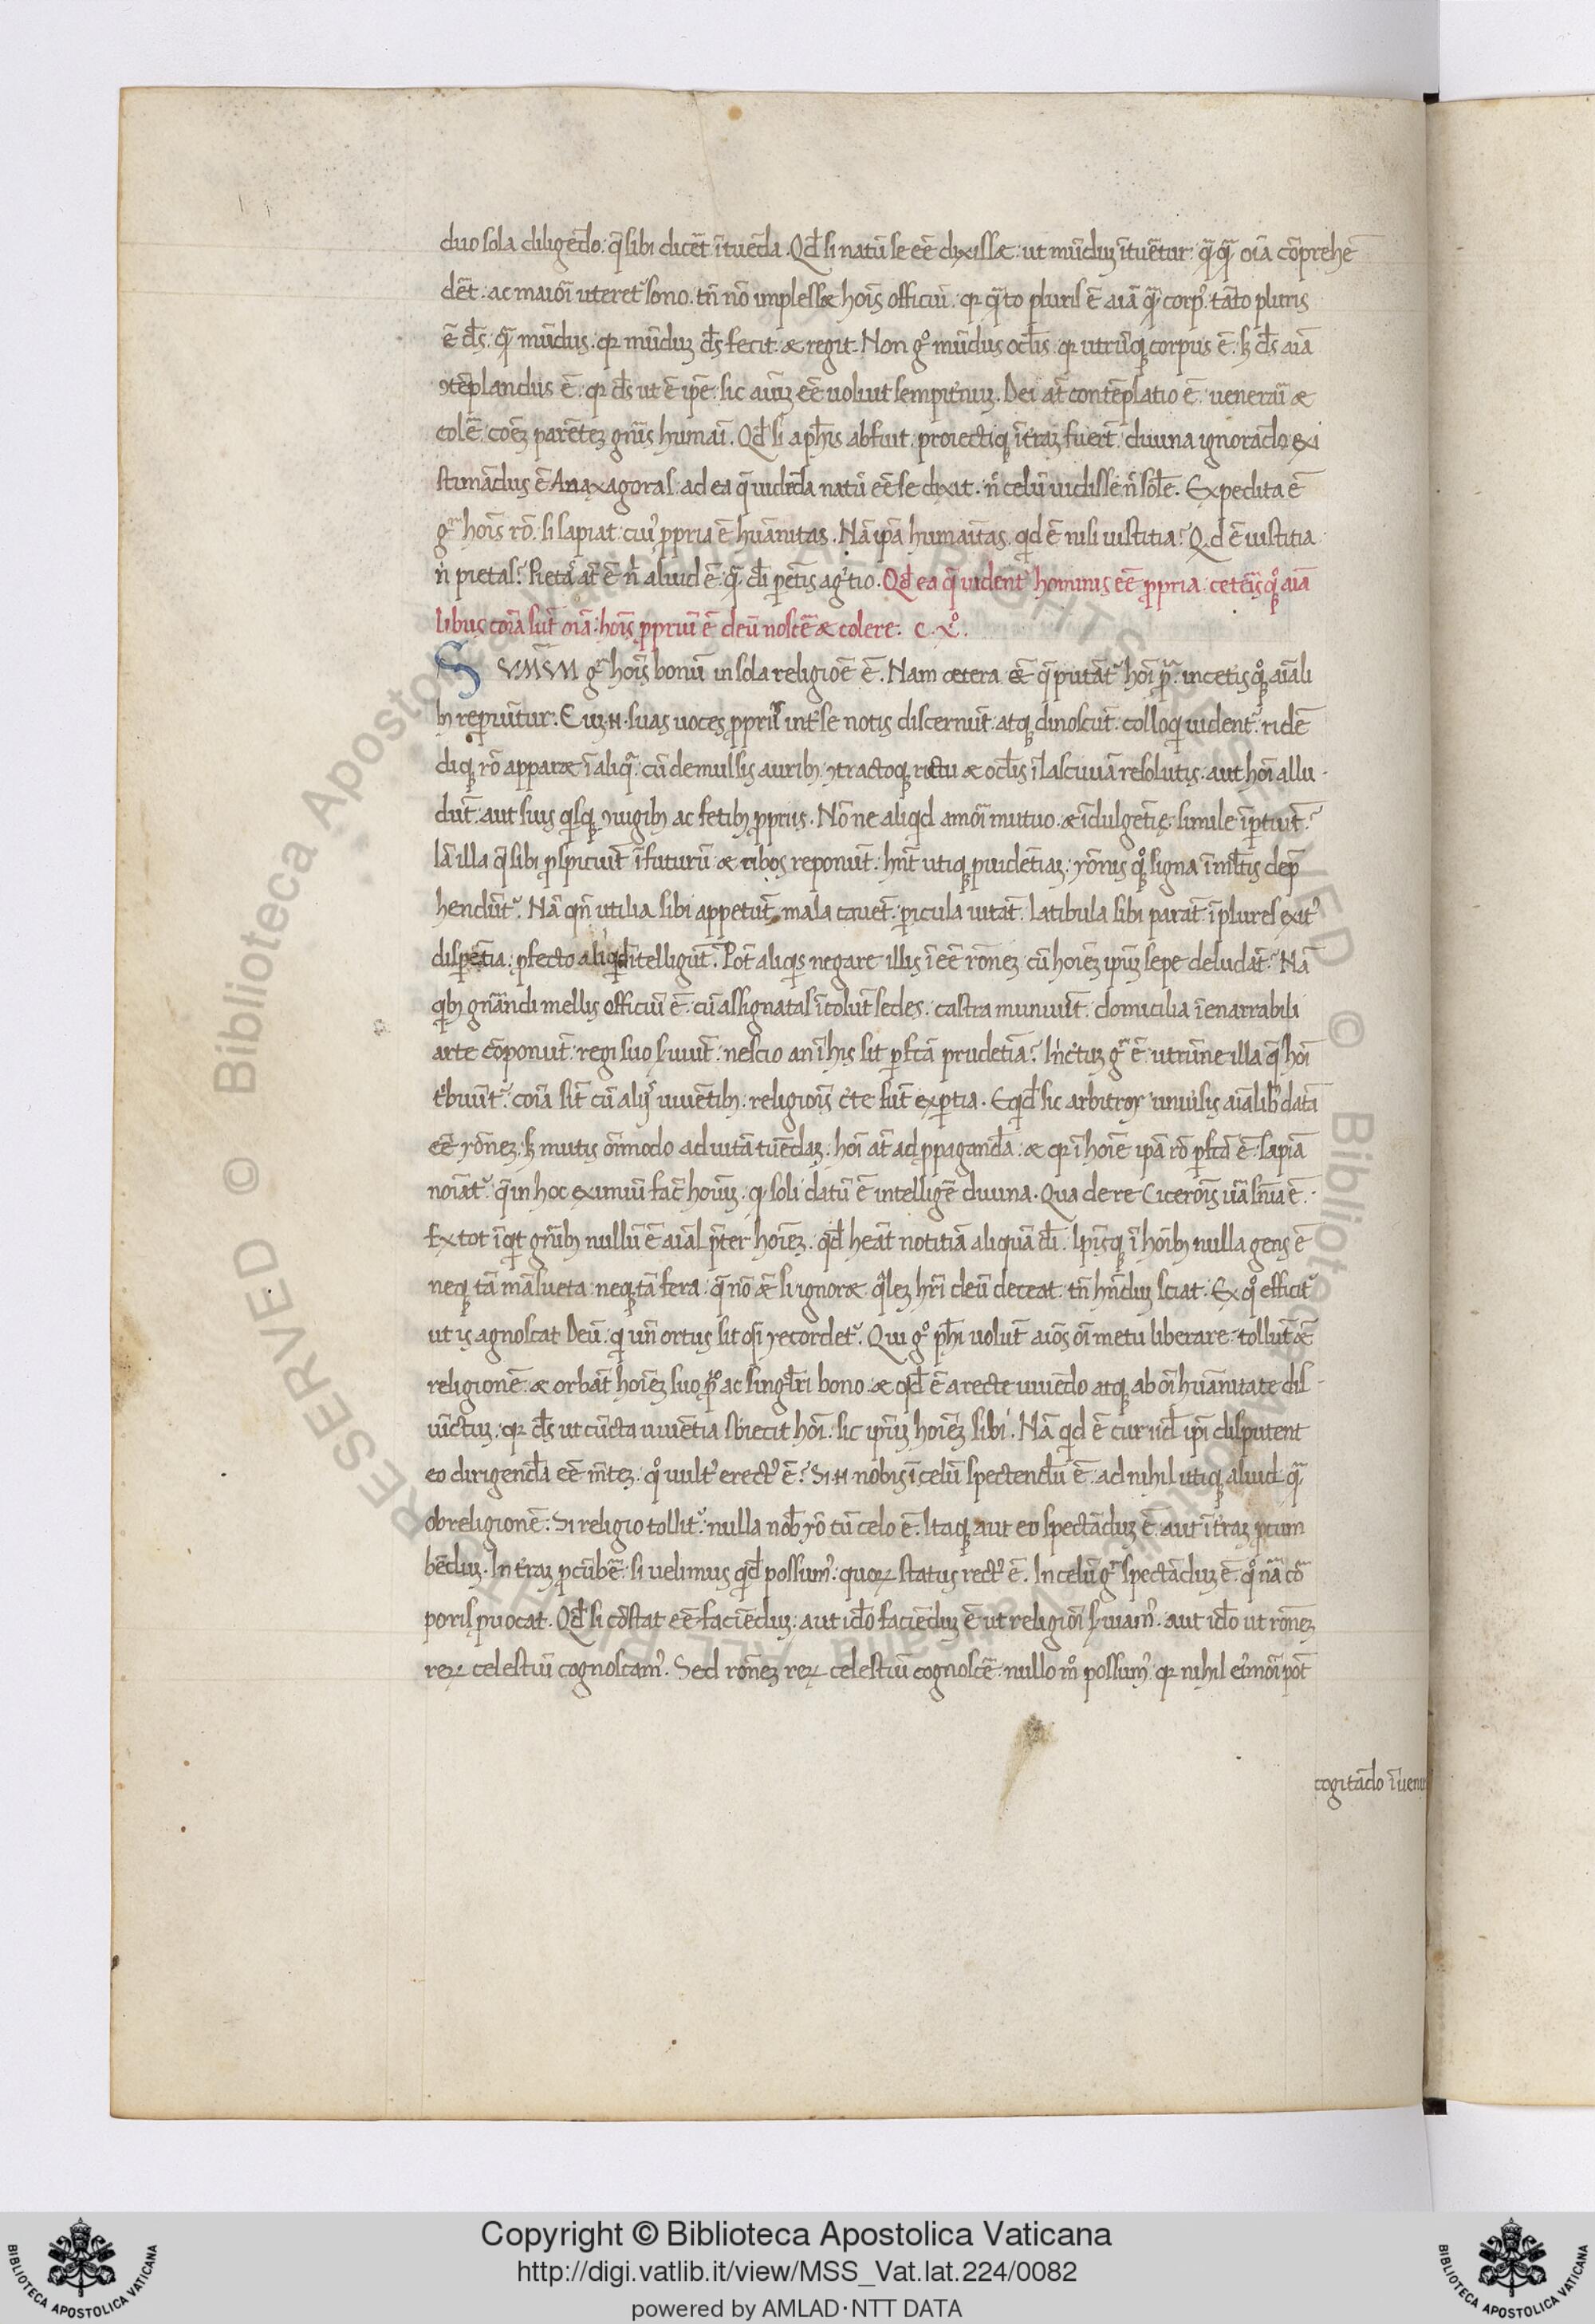 duo sola diligēdo: q̄ sibi dicēt ītuēda. Qd̄ si natū se eē dixissæ: ut mūduȝ ītuētur: q̄q̄ oīa cōprehē
dēt: ac maiōi uteret᷑ sono. tn̄ nō implessæ hoīs officiū. qr q̄to pluris ē aīa q̄ corpꝰ. tāto pluris
ē d̄s. q̄ mūdus. qr mūduȝ d̄s fecit æ regit. Non gͦ mūdus ocl̄is qr utrūqꝫ corpus ē. sꝫ d̄s aīa
ꝯtēplandus ē. qr d̄s ut ē ipē. sic aīuȝ eē uoluit sempit̓nuȝ. Dei at̄ contēplatio ē. uenerāi æ
colē coēȝ parētēȝ gn̄is humai. Qd̄ si a ph̄is abfuit. proiectiqꝫ ī t̓raȝ fuer̄t. diuina ignorādo exi
stimādus ē Anaxagoras. ad ea q̄ uidēda natū eē se dixit. n̄ celū uidisse n̄ sol̄e. Expedita ē
gͦ hoīs rō. si sapiat. cuiꝰ ꝓpria ē huānitas. Nā ipā humaītas. qid ē nisi iustitia? Q,d ē iustitia
n̄ pietas? Pietas at̄ ē n̄ aliud ē. q̄ dī parētis agͥtio. Qd̄ ea q̄ uident᷑ hominis eē ꝓpria. ceteīsqꝫ aīa
libus coīa sūt oīa: hoīs ꝓpriū ē deū noscē æ colere. C. xͦ.
SVMŪM gͦ hoīs bonū in sola religiōe ē. Nam cetera ēt q̄ putāt᷑ hoī ꝓpͥa. in ceteris qͦqꝫ aīali
bꝫ reperiūtur. Cuȝ .n. suas uoces ꝓpriis int̓ se notis discernūt. atqꝫ dinoscūt. colloqi uident᷑. ridē
diqꝫ rō apparæ ī aliqͥs. cū demulsis auribꝫ ꝯtractoqꝫ rictu æ ocl̄is ī lasciuiā resolutis. aut hoī allu
dūt. aut suis qͥsqꝫ ꝯiugibꝫ ac fetibꝫ ꝓpriis. Nō ne aliqd amōi mutuo. æ īdulgētię simile īpertiūt?
Iā illa q̄ sibi ꝓspiciūt ī futurū æ cibos reponūt. hn̄t utiqꝫ ꝓuidētiaȝ. rōnis qͦqꝫ signa ī ml̄tis dep̄
hendūt᷑. Nā qn̄ utilia sibi appetūt. mala cauēt. ꝑicula uitāt. latibula sibi parāt. ī plures exitꝰ
dispētia. ꝓfecto aliqid ītelligūt. Pot̄ aliqis negare illis īeē rōneȝ. cū hoīeȝ ipīuȝ sepe deludāt? Nā
qͥbꝫ gn̄andi mellis officiū ē. cū assignatas īcolūt sedes. castra muniūt. domicilia īenarrabili
arte cōponūt. regi suo s̓uiūt. nescio an ī his sit ꝑfc̄a prudētia? Inc̓tuȝ gͦ ē. utrūne illa q̄ hoī
t̓buūt᷑. coīa sīt cū aliis uiuētibꝫ. religiōis c̓te sūt expertia. Eqid̄ sic arbitror uniūsis aīalibꝫ datā
eē rōneȝ. sꝫ mutis ōīmodo ad uitā tuēdaȝ. hoī at̄ ad ꝓpagandā. æ qr ī hoīe ipā rō ꝑfc̄a ē. sapiā
noīat᷑. q̄ in hoc eximiū facit hoīuȝ. q soli datū ē intelligē diuina. Qua de re Ciceroīs uera sn̄ia ē.
Ex tot īqit gn̄ibꝫ nullū ē aīal p̄ter hoīeȝ. qd̄ heāt notitiā aliquā dī. Ipīsqꝫ ī hoībꝫ nulla gens ē
neqꝫ tā māsueta neqꝫ tā fera. q̄ nō ēt si ignoræ qͣleȝ hr̄i deū deceat. tn̄ hn̄duȝ sciat. Ex qͦ efficit᷑
ut is agnoscat Deū. qi un̄ ortus sit qsi recordet᷑. Qui gͦ ph̄i uolūt aiōs oī metu liberare. tollūt ēt
religionē. æ orbāt hoīeȝ suo ꝓpͦ ac singl̄ari bono. æ qd̄ ē a recte uiuēdo atqꝫ ab oī huānitate dis
iūctuȝ. qr d̄s ut cūcta uiuētia sb̄iecit hoī. sic ipīuȝ hoīeȝ sibi. Nā qid ē cur iid̄ ipī disputent
eo dirigendā eē mēteȝ. qͦ uultꝰ erectꝰ ē? Si .n. nobis ī celū spectendū ē. ad nihil utiqꝫ aliud q̄
ob religionē. Si religio tollit᷑. nulla nob̄ rō cū celo ē. Itaqꝫ aut eo spectāduȝ ē. aut ī t̓raȝ ꝓcum
bēduȝ. In t̓raȝ ꝓcūbē. si uelimus qid̄ possumꝰ. quoꝝ status rectꝰ ē. In celū gͦ spectāduȝ ē. qͦ nā cō
poris ꝓuocat. Qd̄ si cōstat eē faciēduȝ. aut id̄o faciēduȝ ē ut religiōi s̓uiamꝰ. aut id̄o ut rōneȝ
reꝝ celestiū cognoscamꝰ. Sed rōneȝ reꝝ celestiū cognoscē. nullo mͦ possumꝰ. qr nihil eiꝰmōi pōt
cogitādo īueni
Copyright © Biblioteca Apostolica Vaticana
http://digi.vatlib.it/view/MSS_Vat.lat.224/0082
powered by AMLAD·NTT DATA
BIBLIOTECA APOSTOLICA VATICANA
BIBLIOTECA APOSTOLICA VATICANA